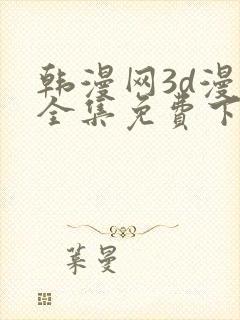 韩漫网3d漫
全集免费下
叶曼